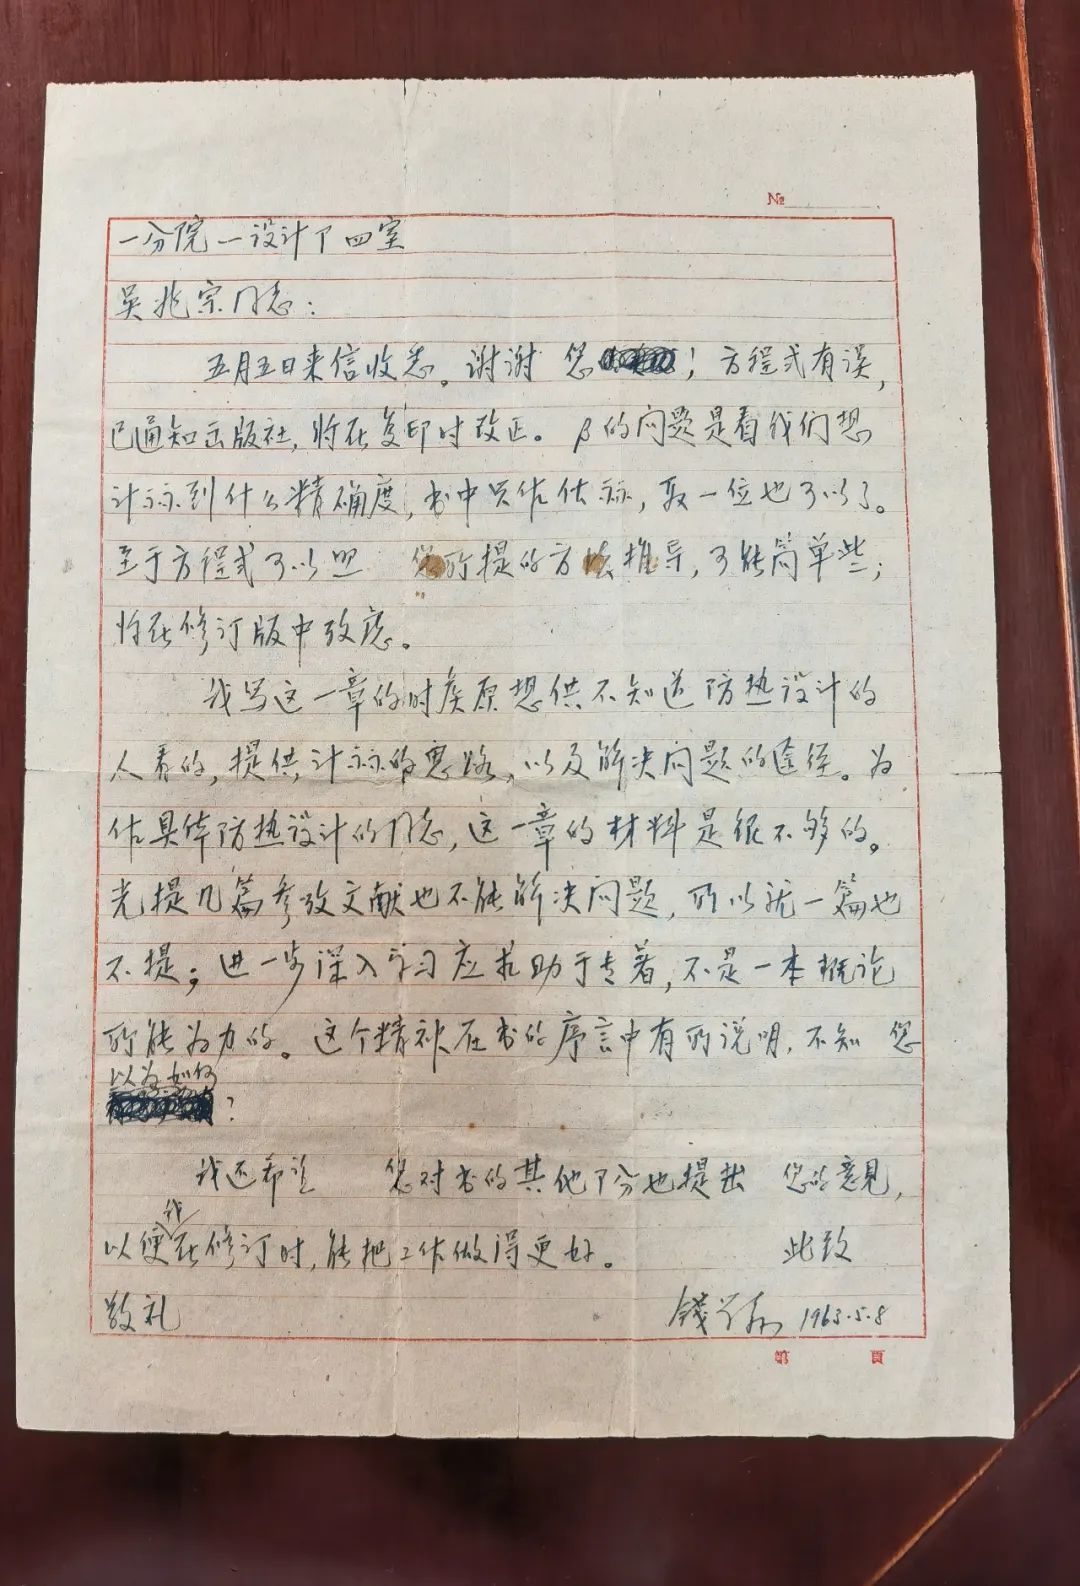 №
一分院一设计卩四室
吴兆宗同志：
五月五日来信收悉。谢谢 您！方程式有误，
已通知出版社，将在复印时改正。β的问题是看我们想
计祘到什么精确度，书中只作估祘，取一位也可以了。
至于方程式可以照 您所提的方法推导，可能简单些；
将在修订版中攷虑。
我写这一章的时候原想供不知道防热设计的
人看的，提供计祘的思路，以及解决问题的途径。为
作具体防热设计的同志，这一章的材料是很不够的。
光提几篇参攷文献也不能解决问题，所以就一篇也
不提；进一步深入学习应求助于专著，不是一本概论
所能为力的。这个精神在书的序言中有所说明，不知 您
以为如何
？
我还希望 您对书的其他卩分也提出 您的意见，
以便我在修订时，能把工作做得更好。 此致
敬礼 錢学森 1963.5.8
第 頁